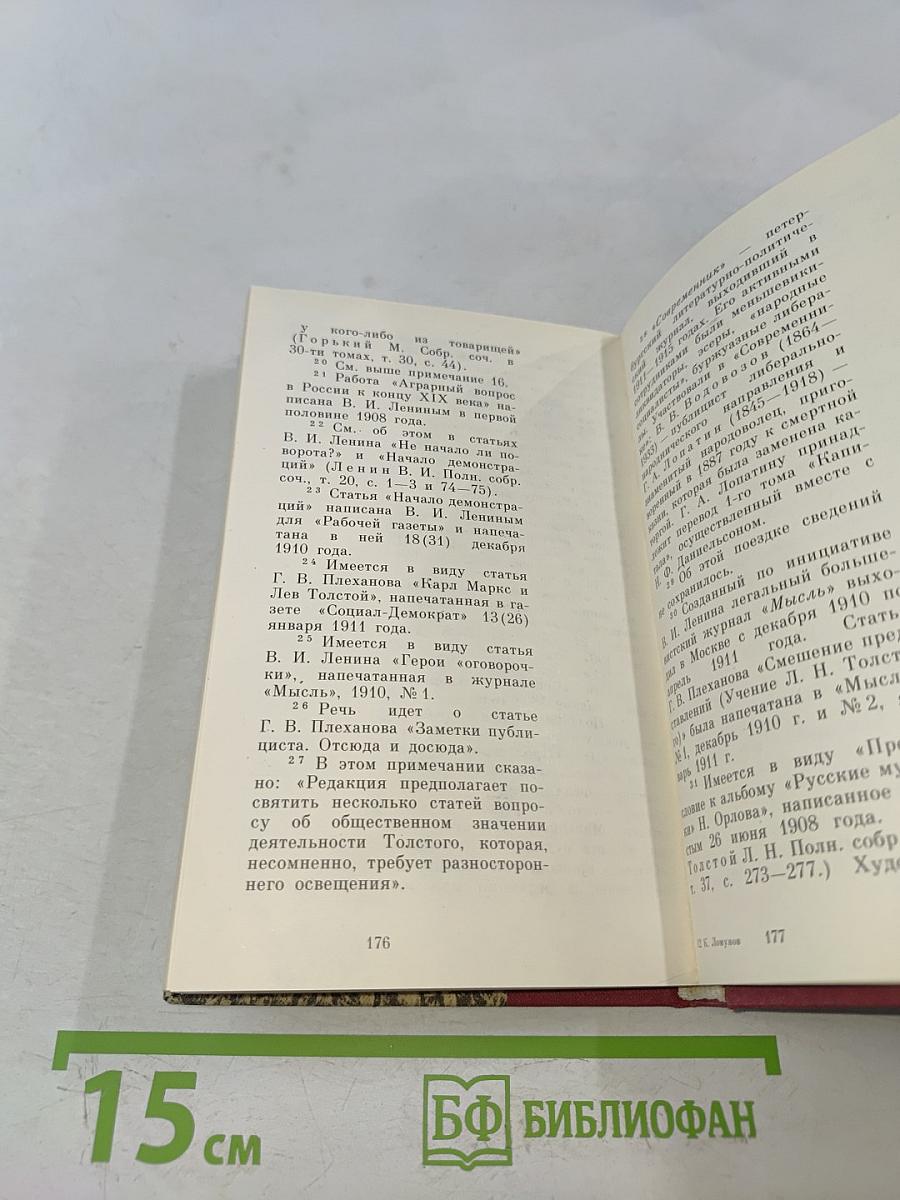 у кого-либо из товарищей»
(Горький М. Собр. соч. в
30-ти томах, т. 30, с. 44).
20 См. выше примечание 16.
21 Работа «Аграрный вопрос
в России к концу XIX века» на-
писана В. И. Лениным в первой
половине 1908 года.
22 См. об этом в статьях
В. И. Ленина «Не начало ли по-
ворота?» и «Начало демонстра-
ций» (Ленин В. И. Полн. собр.
соч., т. 20, с. 1—3 и 74—75).
23 Статья «Начало демонстра-
ций» написана В. И. Лениным
для «Рабочей газеты» и напеча-
тана в ней 18(31) декабря
1910 года.
24 Имеется в виду статья
Г. В. Плеханова «Карл Маркс и
Лев Толстой», напечатанная в га-
зете «Социал-Демократ» 13(26)
января 1911 года.
25 Имеется в виду статья
В. И. Ленина «Герои «оговороч-
ки», напечатанная в журнале
«Мысль», 1910, №1.
26 Речь идет о статье
Г. В. Плеханова «Заметки публи-
циста. Отсюда и досюда».
27 В этом примечании сказа-
но: «Редакция предполагает по-
святить несколько статей вопро-
су об общественном значении
деятельности Толстого, которая,
несомненно, требует разносторон-
него освещения».
176
28 «Современник» — петер-
бургский литературно-политиче-
ский журнал, выходивший в
1911—1915 годах. Его активными
сотрудниками были меньшевики-
ликвидаторы, эсеры, «народные
социалисты», буржуазные либера-
лы. Участвовали в «Современни-
ке»: В. В. Водовозов (1864—
1933) — публицист либерально-
народнического направления и
Г. А. Лопатин (1845—1918) —
знаменитый народоволец, приго-
воренный в 1887 году к смертной
казни, которая была заменена ка-
торгой. Г. А. Лопатину принад-
лежит перевод 1-го тома «Капи-
тала», осуществленный вместе с
Н. Ф. Даниельсоном.
29 Об этой поездке сведений
не сохранилось.
30 Созданный по инициативе
В. И. Ленина легальный больше-
вистский журнал «Мысль» выхо-
дил в Москве с декабря 1910 по
апрель 1911 года. Стать
Г. В. Плеханова «Смешение пред
ставлений (Учение Л. Н. Толст
го)» была напечатана в «Мысл
№1, декабрь 1910 г. и №2,
варь 1911 г.
31 Имеется в виду «Пре
словие к альбому «Русские му
ки» Н. Орлова», написанное
стым 26 июня 1908 года.
Толстой Л. Н. Полн. собр.
т. 37, с. 273—277.) Худо
12 К. Ломунов 177
15 см
БФ БИБЛИОФАН